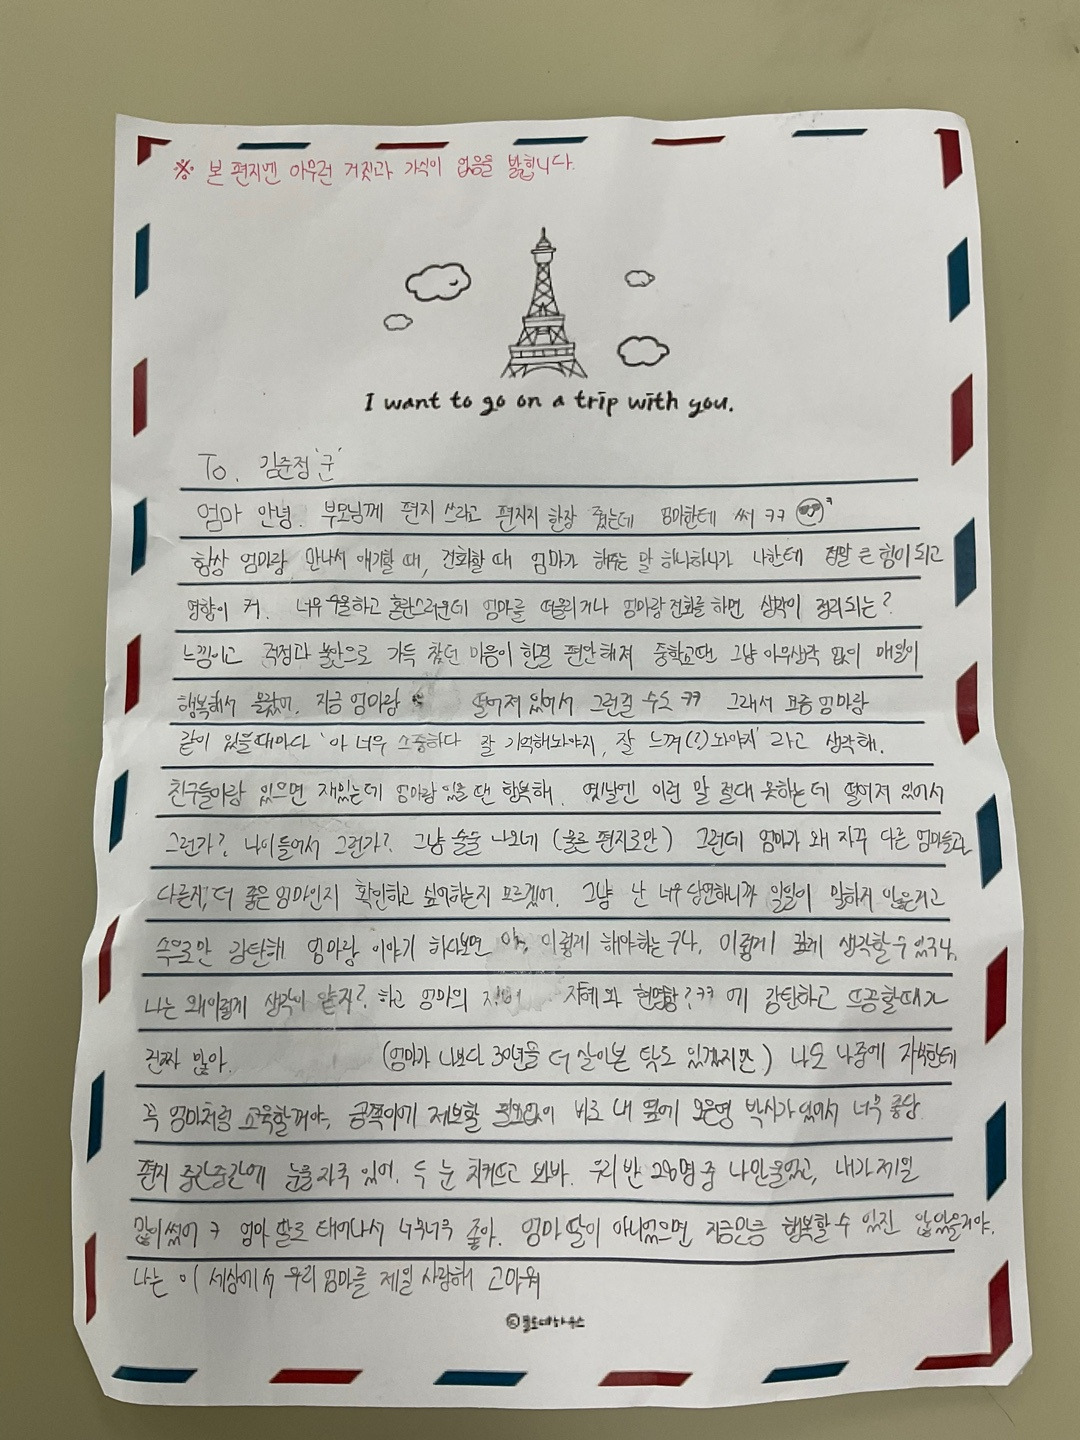 ※ 본 편지엔 아무런 거짓과 가식이 없음을 밝힙니다.
I want to go on a trip with you.
To. 김준정 '군'
엄마 안녕. 부모님께 편지 쓰라고 편지지 한장 줬는데 엄마한테 써 ㅋㅋ ㅋ
항상 엄마랑 만나서 얘기할 때, 전화할 때 엄마가 해주는 말 하나하나가 나한테 정말 큰 힘이 되고
영향이 커. 너무 우울하고 혼란스러운데 엄마를 떠올리거나 엄마랑 전화를 하면 생각이 정리되는?
느낌이고 걱정과 불안으로 가득 찼던 마음이 한결 편안해져 중학교땐 그냥 아무생각 없이 매일이
행복해서 몰랐어. 지금 엄마랑 떨어져 있어서 그런걸 수도 ㅋㅋ 그래서 요즘 엄마랑
같이 있을때마다 '아 너무 소중하다 잘 기억해놔야지, 잘 느껴(?)놔야지' 라고 생각해.
친구들이랑 있으면 재밌는데 엄마랑 있을 땐 행복해. 옛날엔 이런 말 절대 못하는데 떨어져 있어서
그런가? 나이들어서 그런가? 그냥 술술 나오네 (물론 편지로만) 그런데 엄마가 왜 자꾸 다른 엄마들과
다른지, 더 좋은 엄마인지 확인하고 싶어하는지 모르겠어. 그냥 난 너무 당연하니까 일일이 말하지 않을거고
속으로만 감탄해 엄마랑 이야기 하다보면 아, 이렇게 해야하는구나, 이렇게 깊게 생각할 수 있구나,
나는 왜이렇게 생각이 얕지? 하고 엄마의 지혜와 현명함?ㅋㅋ 에 감탄하고 뜨끔할때가
진짜 많아. (엄마가 나보다 30년을 더 살아본 탓도 있겠지만) 나도 나중에 자식한테
꼭 엄마처럼 교육할꺼야, 금쪽이에 제보할 필요없이 바로 내 옆에 오은영 박사가 있어서 너무 좋당
편지 중간중간에 눈물자국 있어. 두 눈 치켜뜨고 봐봐. 우리 반 28명 중 나만 울었고, 내가 제일
많이썼어 ㅋ 엄마 딸로 태어나서 너무너무 좋아. 엄마 딸이 아니었으면 지금만큼 행복할 수 있진 않았을거야.
나는 이 세상에서 우리 엄마를 제일 사랑해 고마워